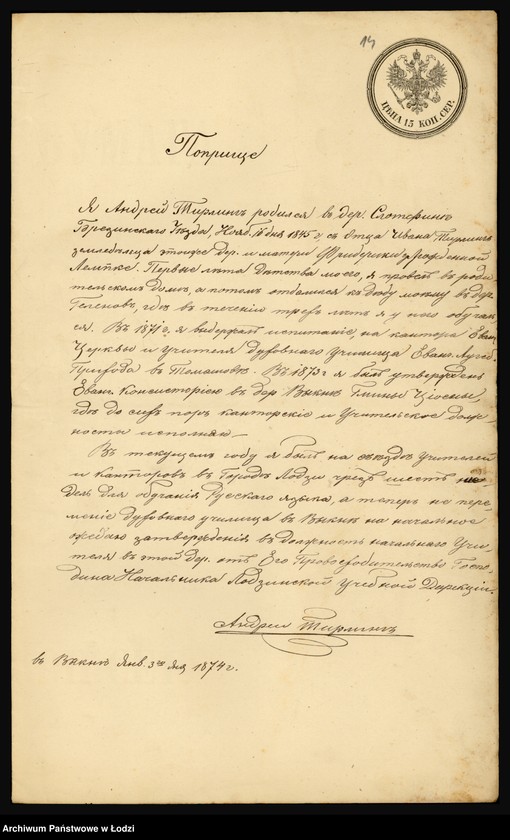 14
ЦѢНА 15 КОП. СЕР.
Поприще
Я Андрей Тирлингъ родился въ дер.
Уѣзда, Нояб. дня 1845 г, съ отца Ивана Тирлингъ
земледѣльца этойже дер. и матери Фридерики урожденной
Лемпке. Первые лѣта дѣтства моего, я провелъ въ роди-
тельскомъ домѣ, а потомъ отдался къ дяду моему въ дер.
гдѣ въ теченіи трехъ лѣтъ я у него обучал-
ся. Въ 1871 г. я выдержалъ испытаніе, на кантора Еван.
Церквы и учителя духовнаго училища Еван. Аугсб.
Прихода въ Томашовѣ. Въ 1873 г я былъ утвержденъ
Еван. Консисторіею въ дер Внкнѣ Гмины Ціосны,
гдѣ до сихъ поръ канторскіе и Учительское долж-
ность исполняю—
Въ текущемъ году я былъ на съѣздѣ учителей
и канторовъ въ Городѣ Лодзи чрезъ шесть не-
дель для обученія Русскаго языка, а теперь по пере-
мѣніе духовнаго училища въ Внкнѣ на начальное
ожедаю затвержденія въ должность начальнаго Учи-
теля въ этой дер. отъ Его Превосходительство Госпо-
дина Начальника Лодзинской Учебной Дирекціи.
Андрей Тирлингъ
въ Внкнѣ Янв. 3го дня 1874 г.
Archiwum Państwowe w Łodzi